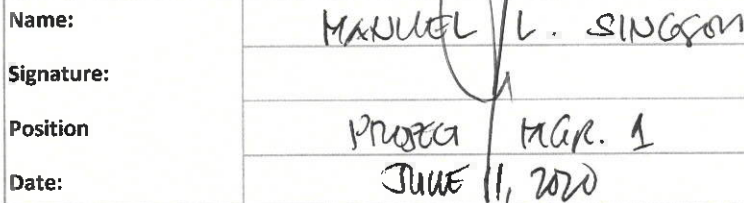 Name: MANUEL L. SINGSON
Signature:
Position PROJECT MGR. 1
Date: JUNE 11, 2020